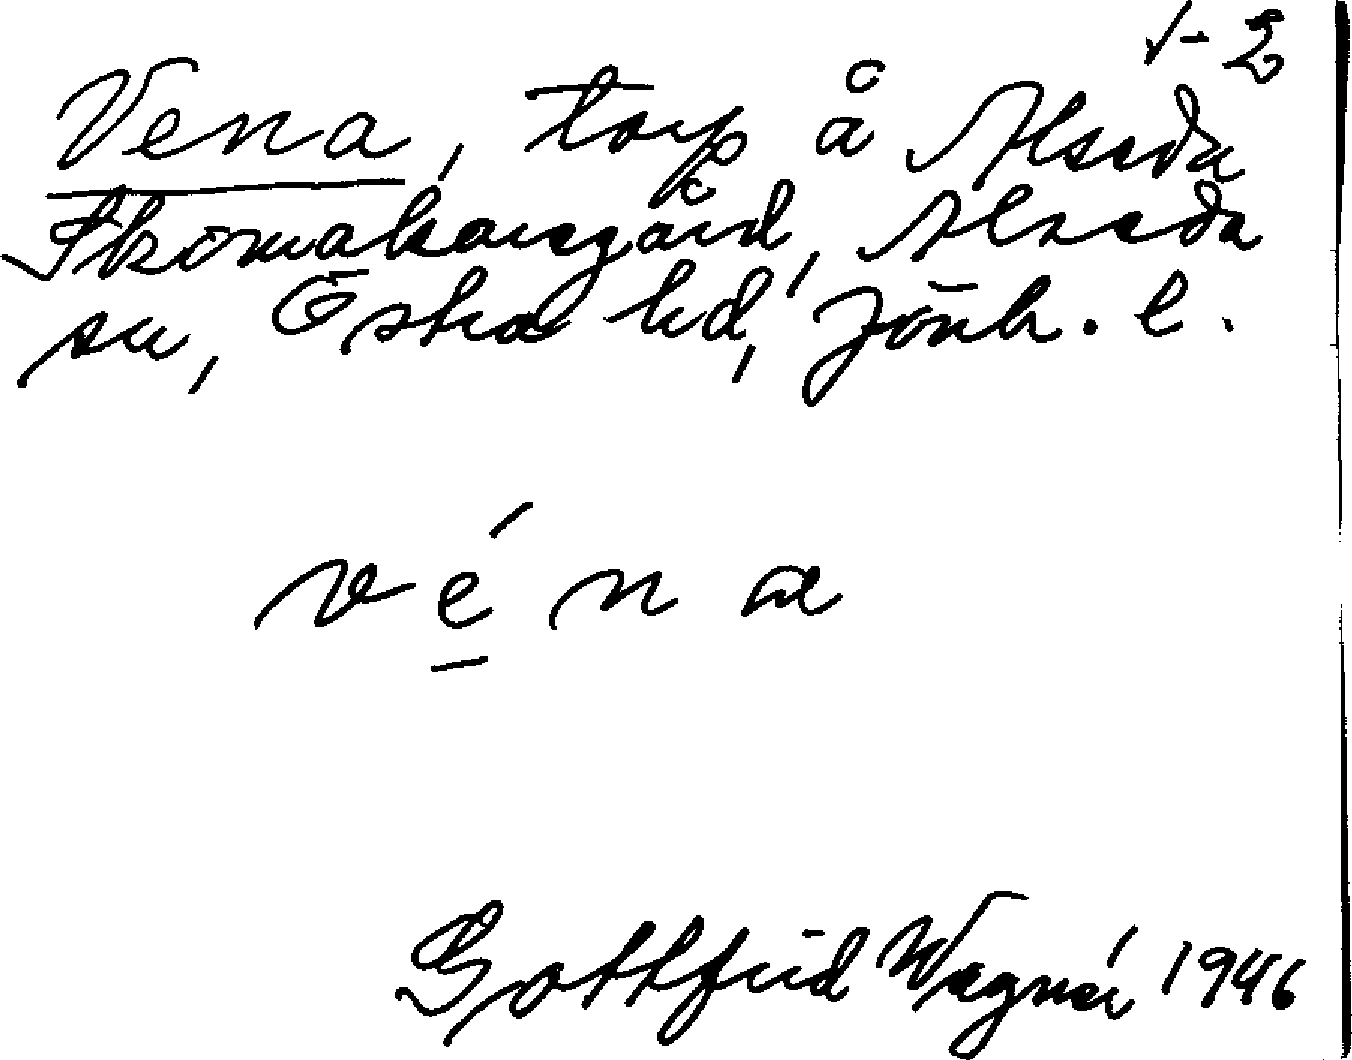 √-2
Vena, torp å Alseda
Skomakaregård, Alseda
sn, Östra hd, Jönk. l.
v é n a
Gottfrid Wagnér 1946